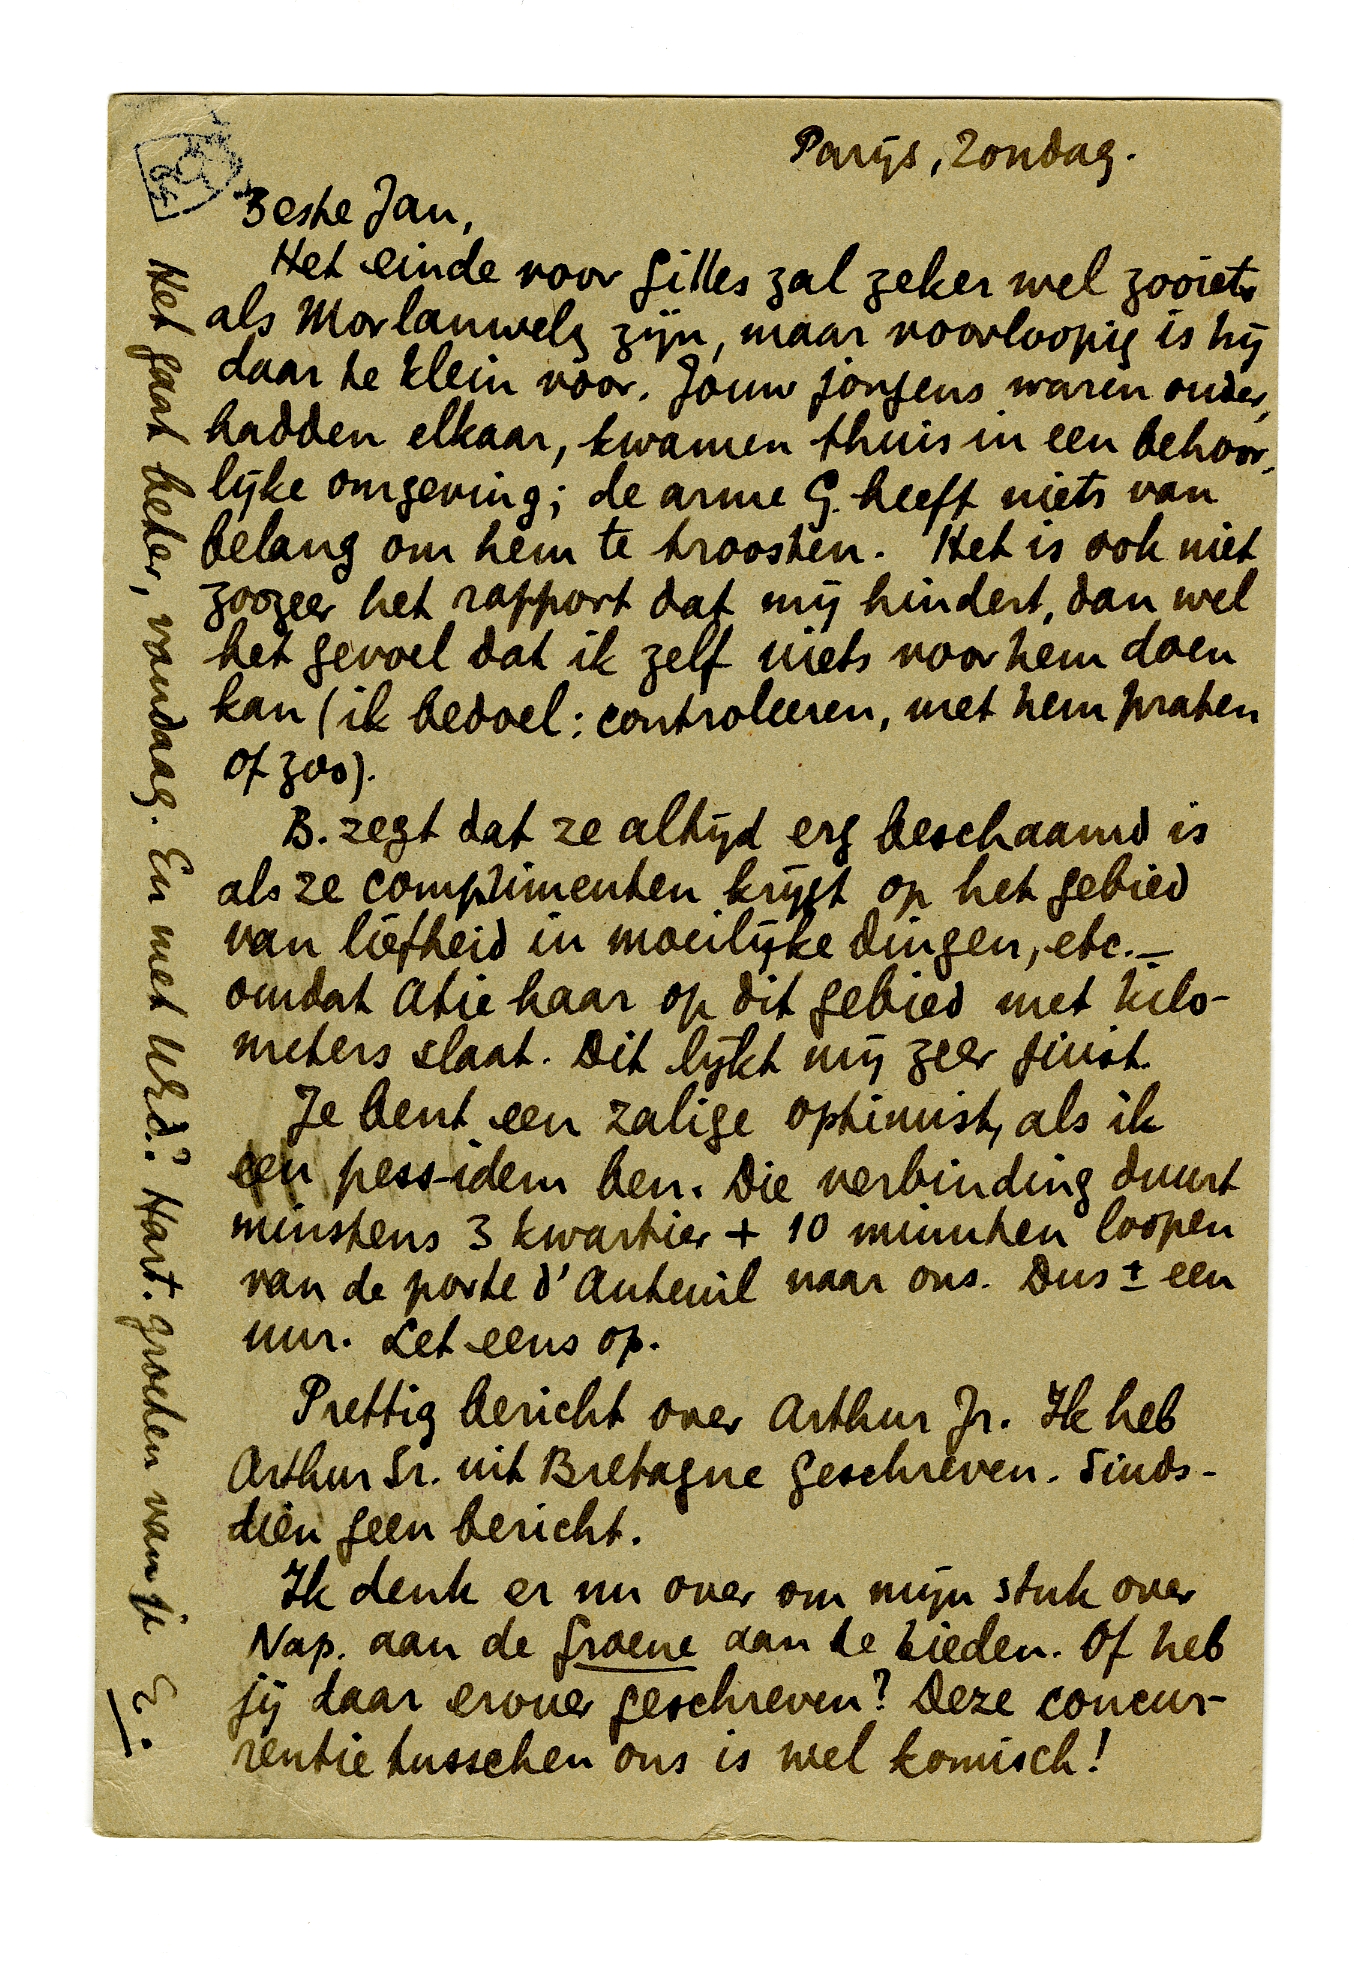 Parijs, Zondag.
Beste Jan,
Het einde voor Gilles zal zeker wel zooiets
als Morlanwelz zijn, maar voorloopig is hij
daar te klein voor. Jouw jongens waren ouder,
hadden elkaar, kwamen thuis in een behoor-
lijke omgeving; de arme G. heeft niets van
belang om hem te troosten. Het is ook niet
zoozeer het rapport dat mij hindert, dan wel
het gevoel dat ik zelf niets voor hem doen
kan (ik bedoel: controleeren, met hem praten
of zoo).
B. zegt dat ze altijd erg beschaamd is
als ze complimenten krijgt op het gebied
van liefheid in moeilijke dingen, etc. –
omdat Atie haar op dit gebied met kilo-
meters slaat. Dit lijkt mij zeer juist.
Je bent een zalige optimist, als ik
een pess-idem ben. Die verbinding duurt
minstens 3 kwartier + 10 minuten loopen
van de porte d'Auteuil naar ons. Dus ± een
uur. Let eens op.
Prettig bericht over Arthur Jr. Ik heb
Arthur Sr. uit Bretagne geschreven. Sinds-
dien geen bericht.
Ik denk er nu over om mijn stuk over
Nap. aan de Groene aan te bieden. Of heb
jij daar erover geschreven? Deze concur-
rentie tusschen ons is wel komisch!
Het gaat beter, vandaag. En met UEd.? Hart. groeten van je E.